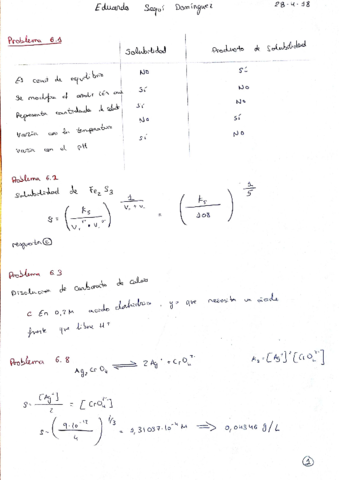 Eduardo Seguí Domínguez 28-4-18
Problema 6.1
Solubilidad Producto de solubilidad
Es const de equilibrio No Sí
Se modifica al añadir ión com Sí No
Representa cantidad de soluto Sí No
Varía con la temperatura No Sí
Varía con el pH Sí No
Problema 6.2
Solubilidad de Fe2 S3
S = (Ks / V+^V+ · V-^V-)^(1 / V+ + V-) = (Ks / 108)^(1/5)
respuesta c
Problema 6.3
Disolución de carbonato de calcio
C En 0,2 M ácido clorhídrico, ya que necesita un ácido
fuerte que libre H+
Problema 6.8
Ag2CrO4 ⇌ 2Ag+ + CrO4^2- Ks = [Ag+]^2 [CrO4^2-]
S = [Ag+] / 2 = [CrO4^2-]
S = (9·10^-12 / 4)^(1/3) = 1,31037·10^-4 M ⟹ 0,04346 g/L
1